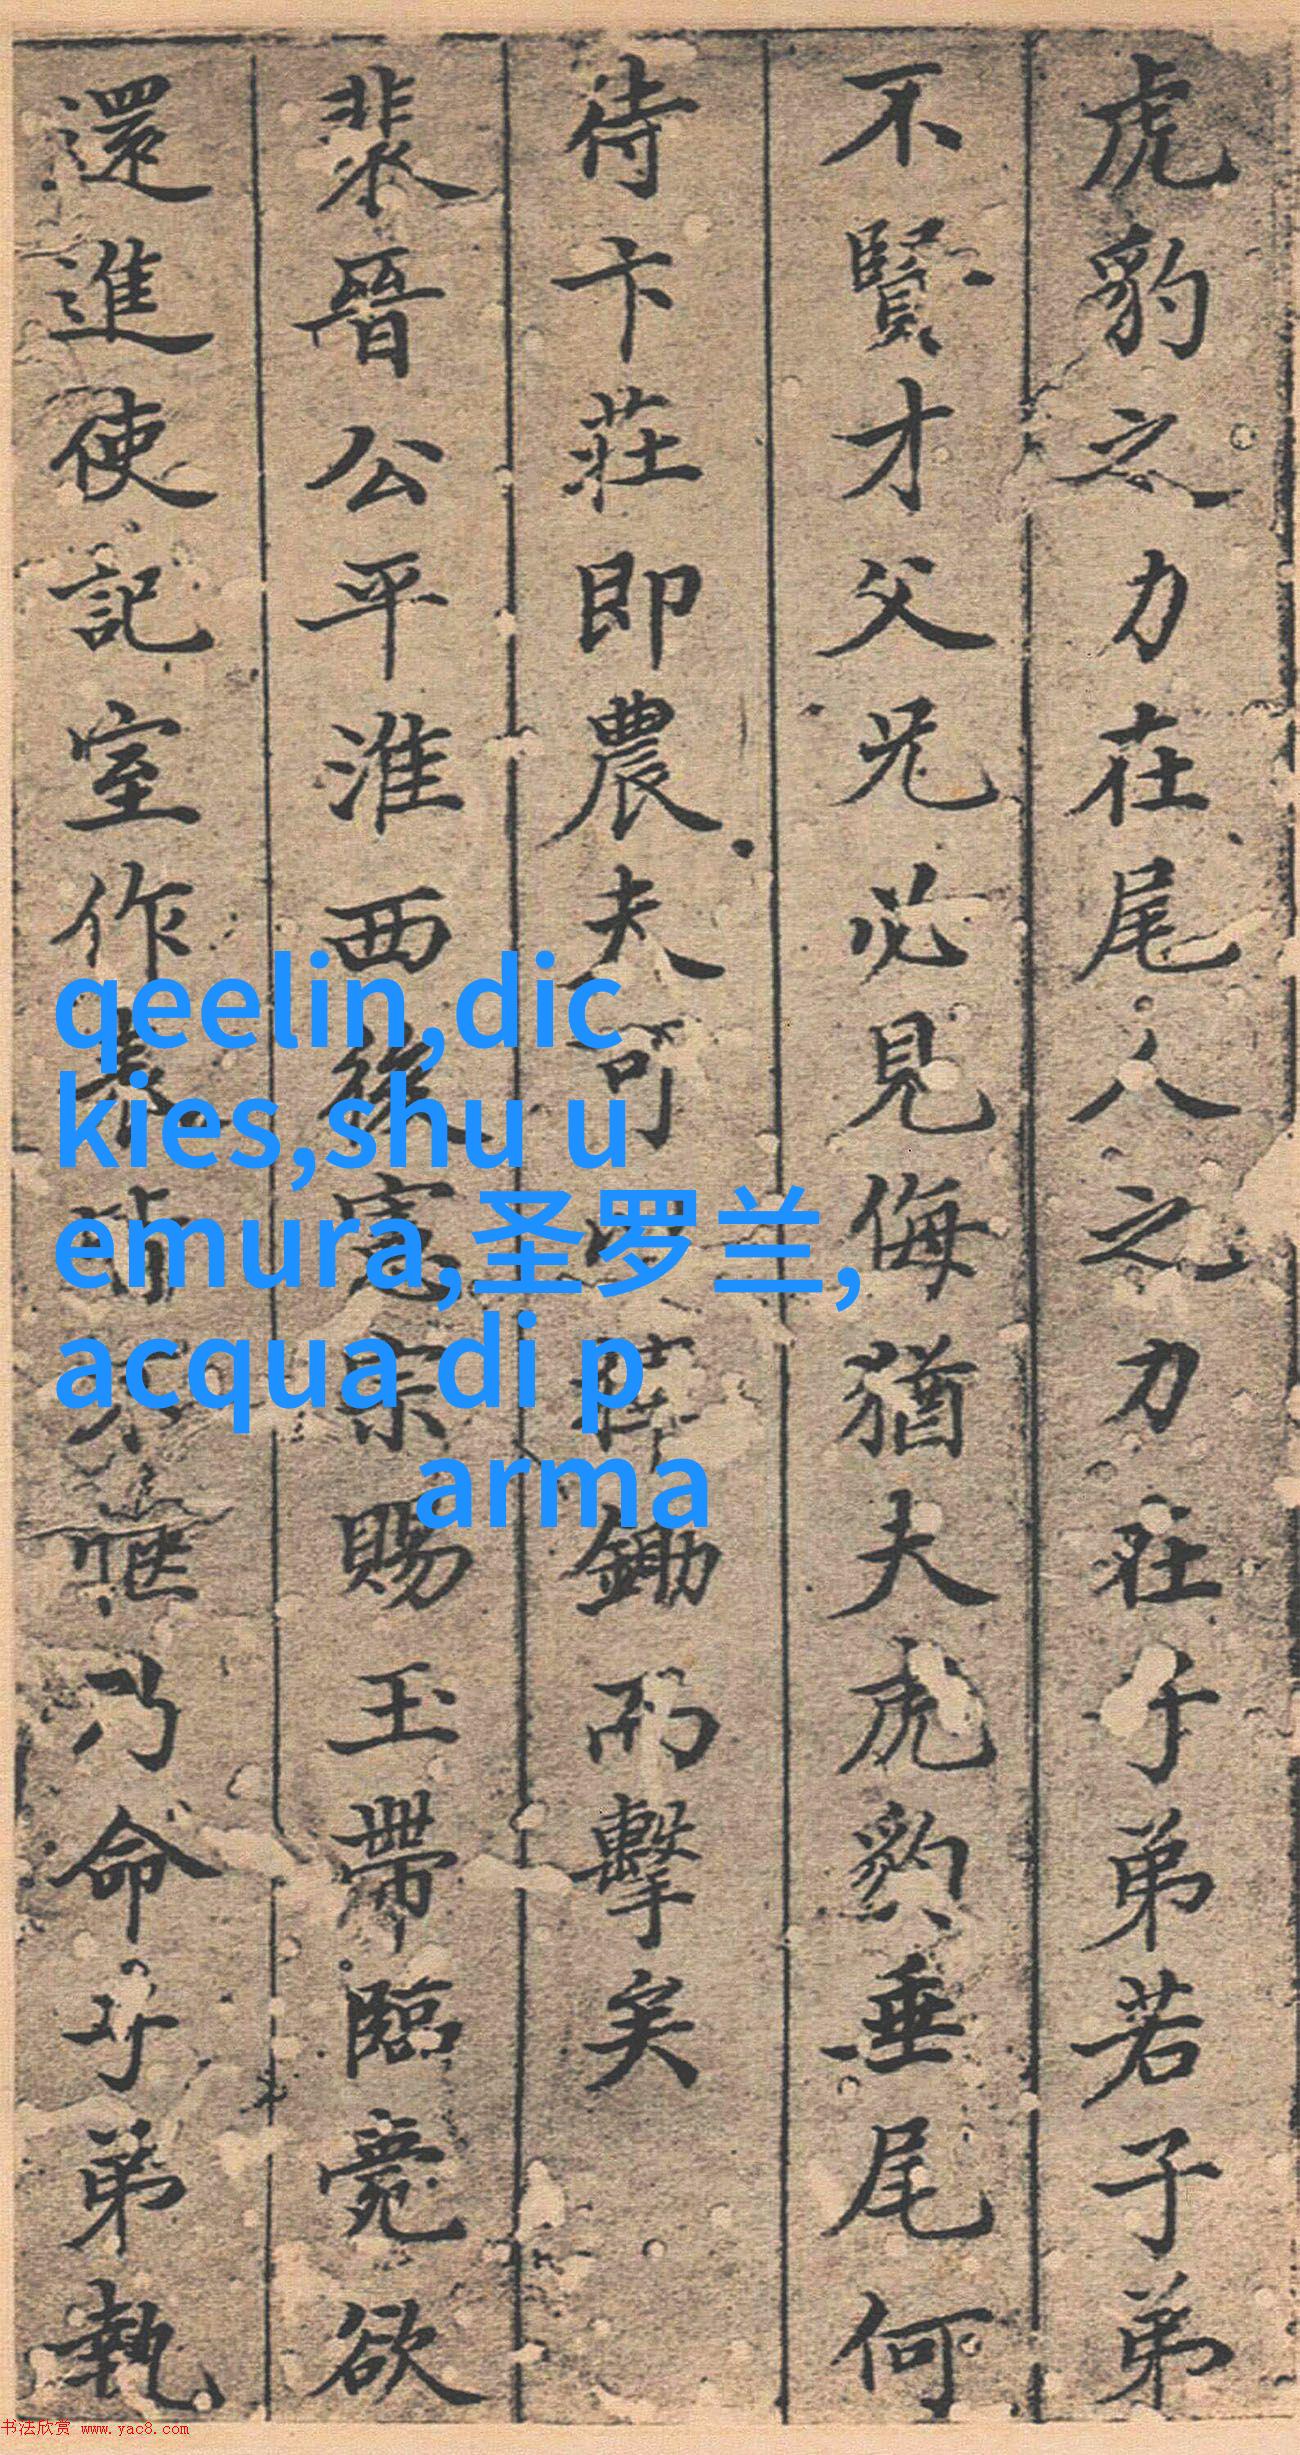 虎豹之力在尾人之力在子弟若子弟
不賢才父兄必見侮猶夫虎豹垂尾何
待卞莊即農夫可 鋤而擊矣
裴晉公平淮西後憲宗賜玉帶臨薨欲
還進使記室作表皆不愜乃命子弟執
qeelin,dic
kies,shu u
emura,圣罗兰,
acqua di p
arma
书法欣赏 www.yac8.com